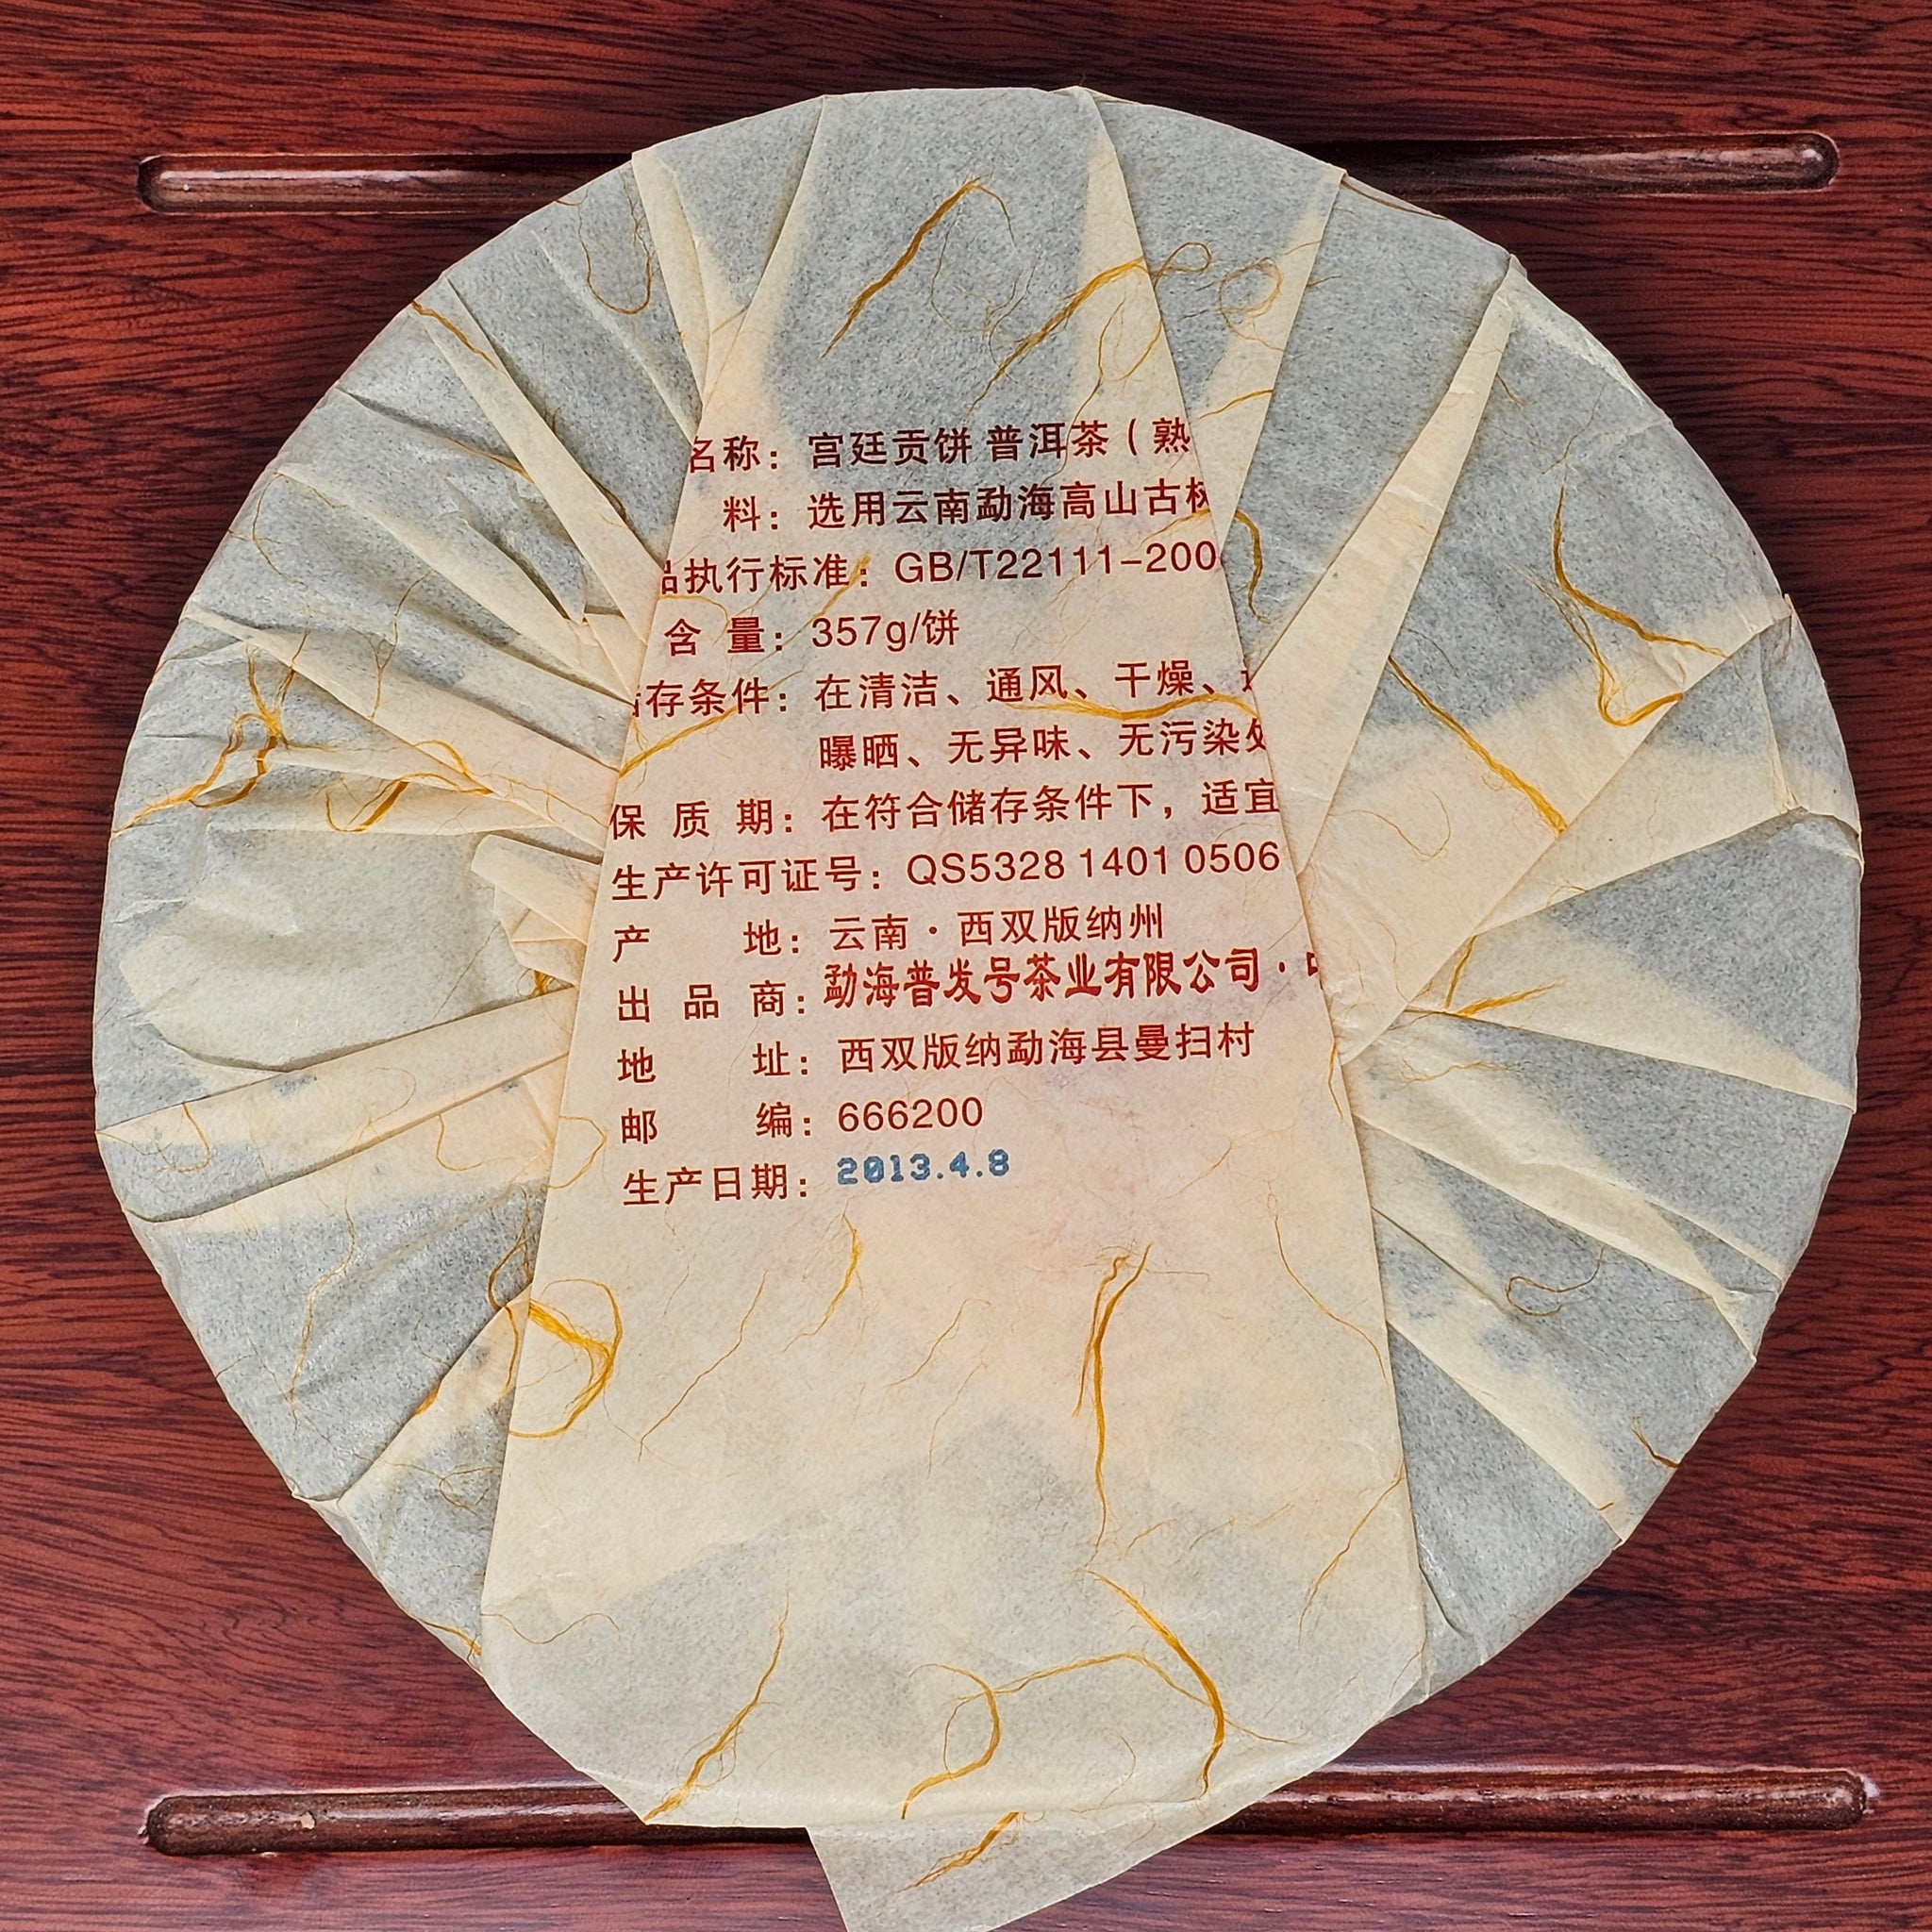 名称：宫廷贡饼 普洱茶（熟
料：选用云南勐海高山古树
品执行标准：GB/T22111-200
含 量：357g/饼
存条件：在清洁、通风、干燥、
曝晒、无异味、无污染处
保 质 期：在符合储存条件下，适宜
生产许可证号：QS5328 1401 0506
产 地：云南·西双版纳州
出 品 商：勐海普发号茶业有限公司·
地 址：西双版纳勐海县曼扫村
邮 编：666200
生产日期：2013.4.8